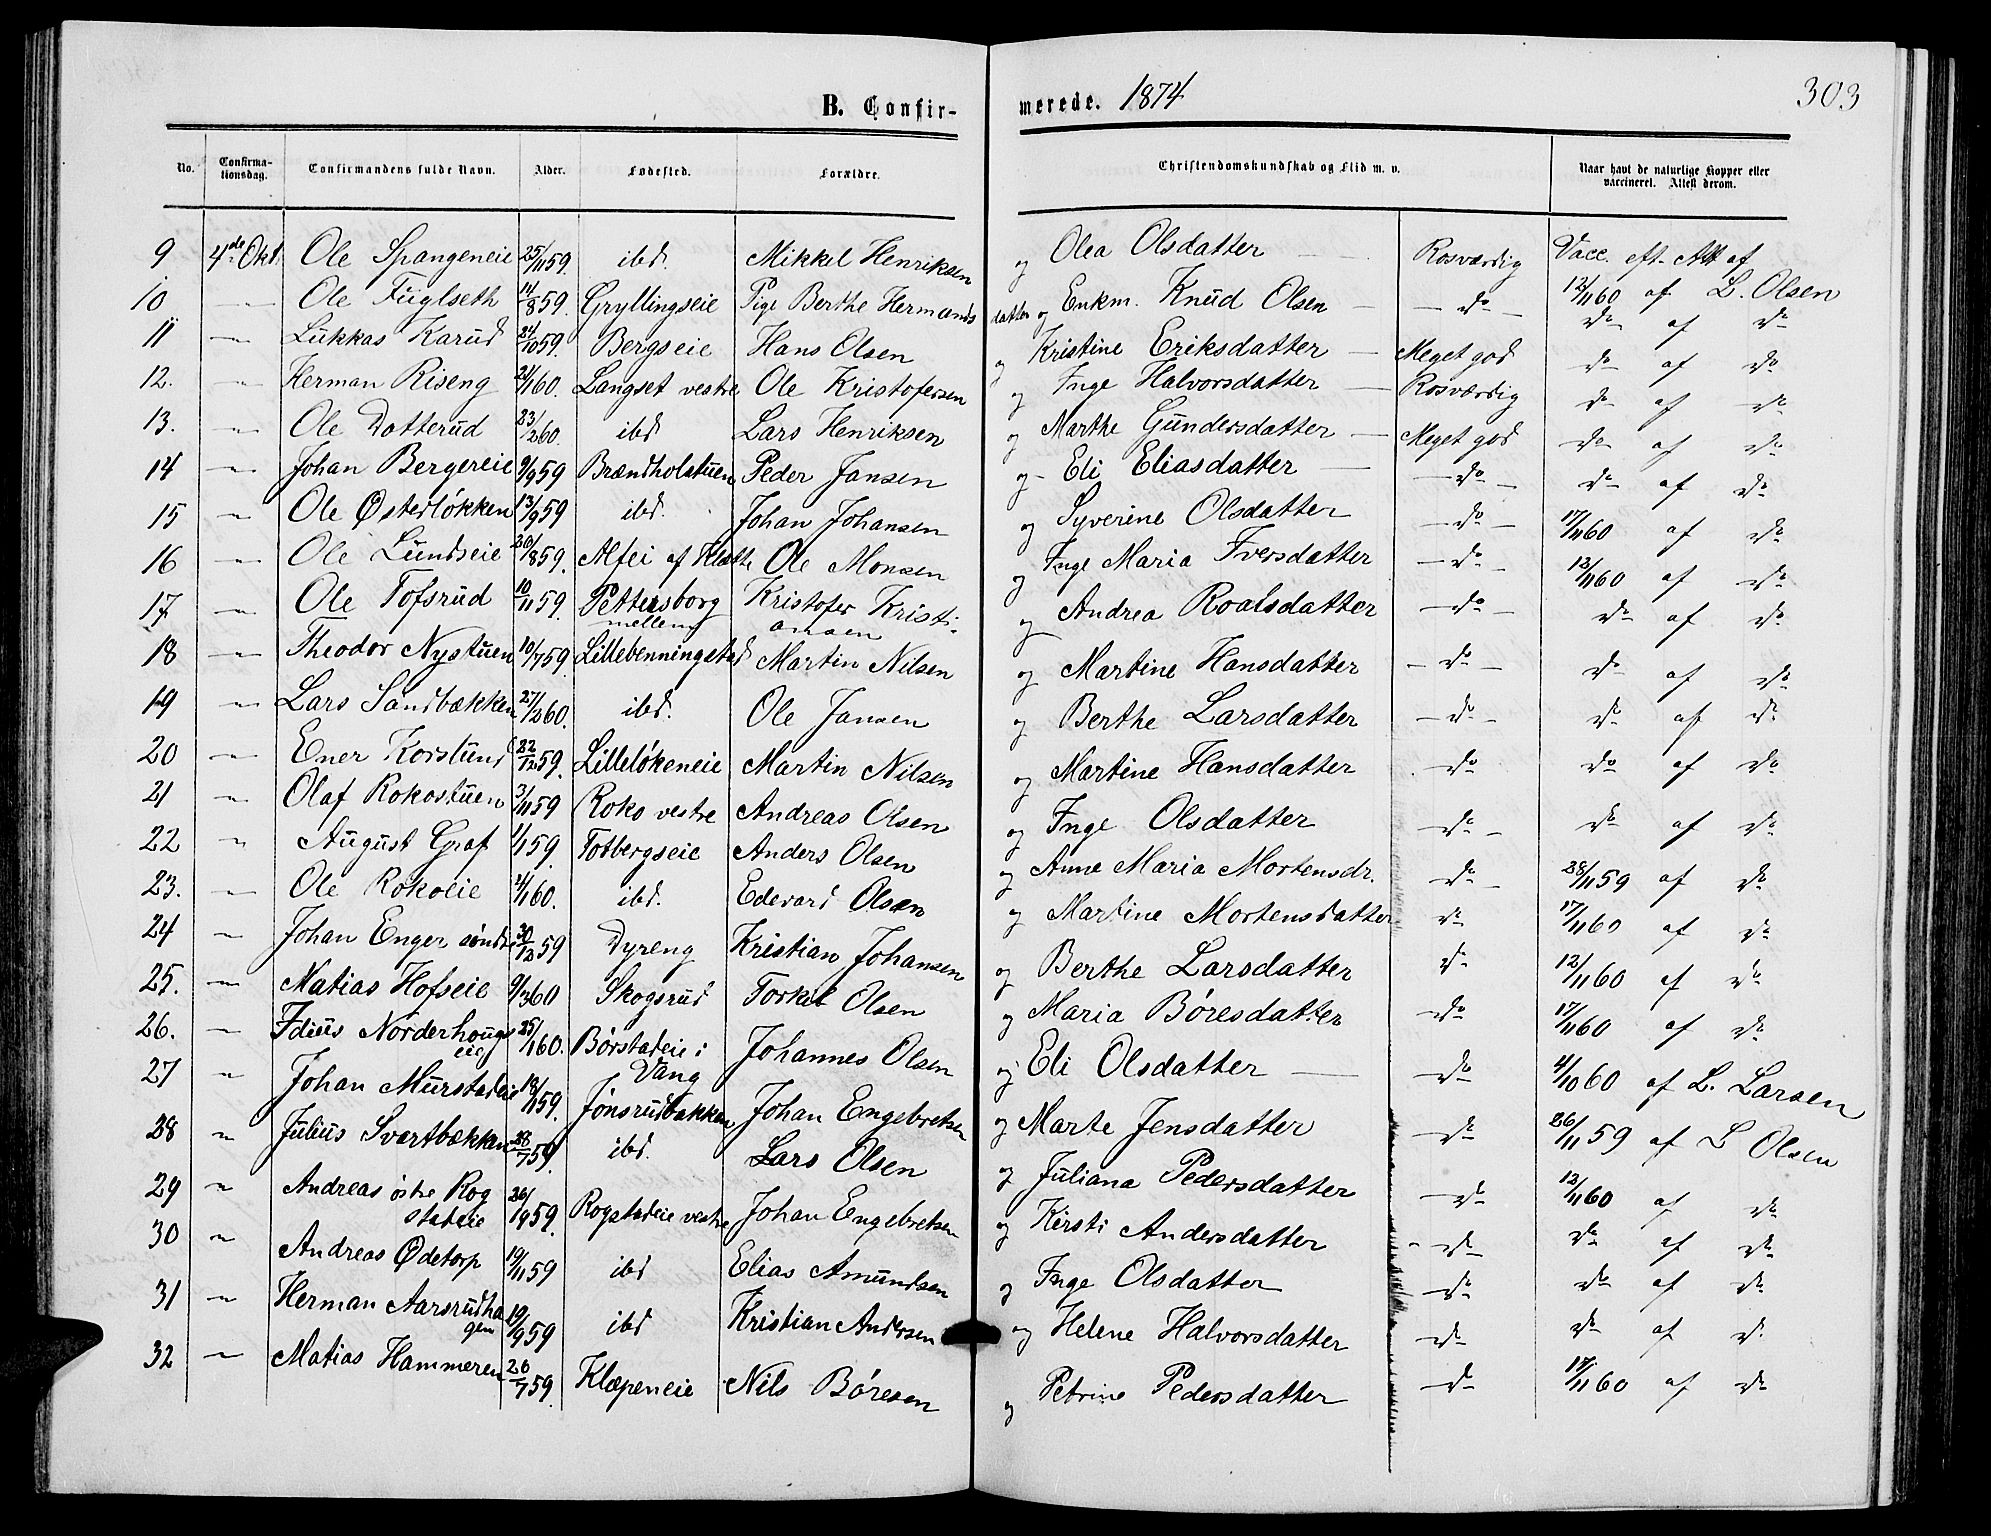 B. Confirmerede. 1874 303
No. Confirmationsdag. Confirmandens fulde Navn. Alder. Fødested. Forældre. Christendomskundskab og Flid m. v. Naar havt de naturlige Kopper eller vaccineret. Attest derom.
9 4de Okt. Ole Spangeneie 25/11 59. ibd. Mikkel Henriksen og Olea Olsdatter Rosværdig Vacc. eft. Att af
10 " Ole Fuglseth 14/8 59. Gryllingseie Pige Berthe Hermandsdatter og Enkm. Knud Olsen do 12/11 60 af L. Olsen
11 " Lukkas Karud 24/10 59. Bergseie Hans Olsen og Kristine Eriksdatter Meget god do af do
12. " Herman Riseng 21/1 60. Langset vestre Ole Kristofersen og Inge Halvorsdatter Rosværdig do af do
13. " Ole Dotterud 23/2 60. ibd Lars Henriksen og Marthe Gundersdatter Meget god do af do
14 " Johan Bergereie 9/9 59 Brændholstuen Peder Jansen og Eli Eliasdatter do do af do
15 " Ole Østerløkken 13/9 59 ibd. Johan Johansen og Syverine Olsdatter do 17/11 60 af do
16 " Ole Lundseie 20/8 59. Alfei af Kløtte Ole Monsen og Inge Maria Iversdatter do 12/11 60 af do
17 " Ole Tofsrud 10/11 59. Pettersborg mellem Kristofer Kristiansen og Andrea Roalsdatter do do af do
18 " Theodor Nystuen 10/7 59. Lillebenningstad Martin Nilsen og Martine Hansdatter do do af do
19 " Lars Sandbækken 27/2 60. ibd. Ole Jansen og Berthe Larsdatter do do af do
20 " Ener Korslund 22/12 59. Lilleløkeneie Martin Nilsen og Martine Hansdatter do do af do
21 " Olaf Rokostuen 3/11 59 Roko vestre Andreas Olsen og Inge Olsdatter do do af do
22 " August Graf 1/1 59. Totbergseie Anders Olsen og Anne Maria Mortensdr. do 28/11 59 af do
23. " Ole Rokoeie 2/1 60. ibd. Edevard Olsen og Martine Mortensdatter do 17/11 60 af do
24 " Johan Enger søndre 30/12 59 Dyreng Kristian Johansen og Berthe Larsdatter do 12/11 60 af do
25. " Matias Hofseie 9/3 60 Skogsrud Torkel Olsen og Maria Børesdatter do 17/11 60 af do
26. " Idius Norderhougseie 25/1 60. Børstadeie i Vang Johannes Olsen og Eli Olsdatter do 4/10 60 af L. Larsen
27 " Johan Murstadeie 18/11 59. Jønsrudbakken Johan Engebretsen og Marte Jensdatter do 26/11 59 af L Olsen
28 " Julius Svartbækken 28/7 59. ibd. Lars Olsen og Juliana Pedersdatter do 12/11 60 af do
29 " Andreas østre Rogstadeie 26/9 59. Rogstadeie vestre Johan Engebretsen og Kirsti Andersdatter do do af do
30 " Andreas Ødetorp 19/11 59 ibd Elias Amundsen og Inge Olsdatter do do af do
31 " Herman Aarsrudhagen 19/9 59 ibd Kristian Andersen og Helene Halvorsdatter do do af do
32 " Matias Hammeren 26/7 59. Klæpeneie Nils Børesen og Petrine Pedersdatter do 17/11 60 af do